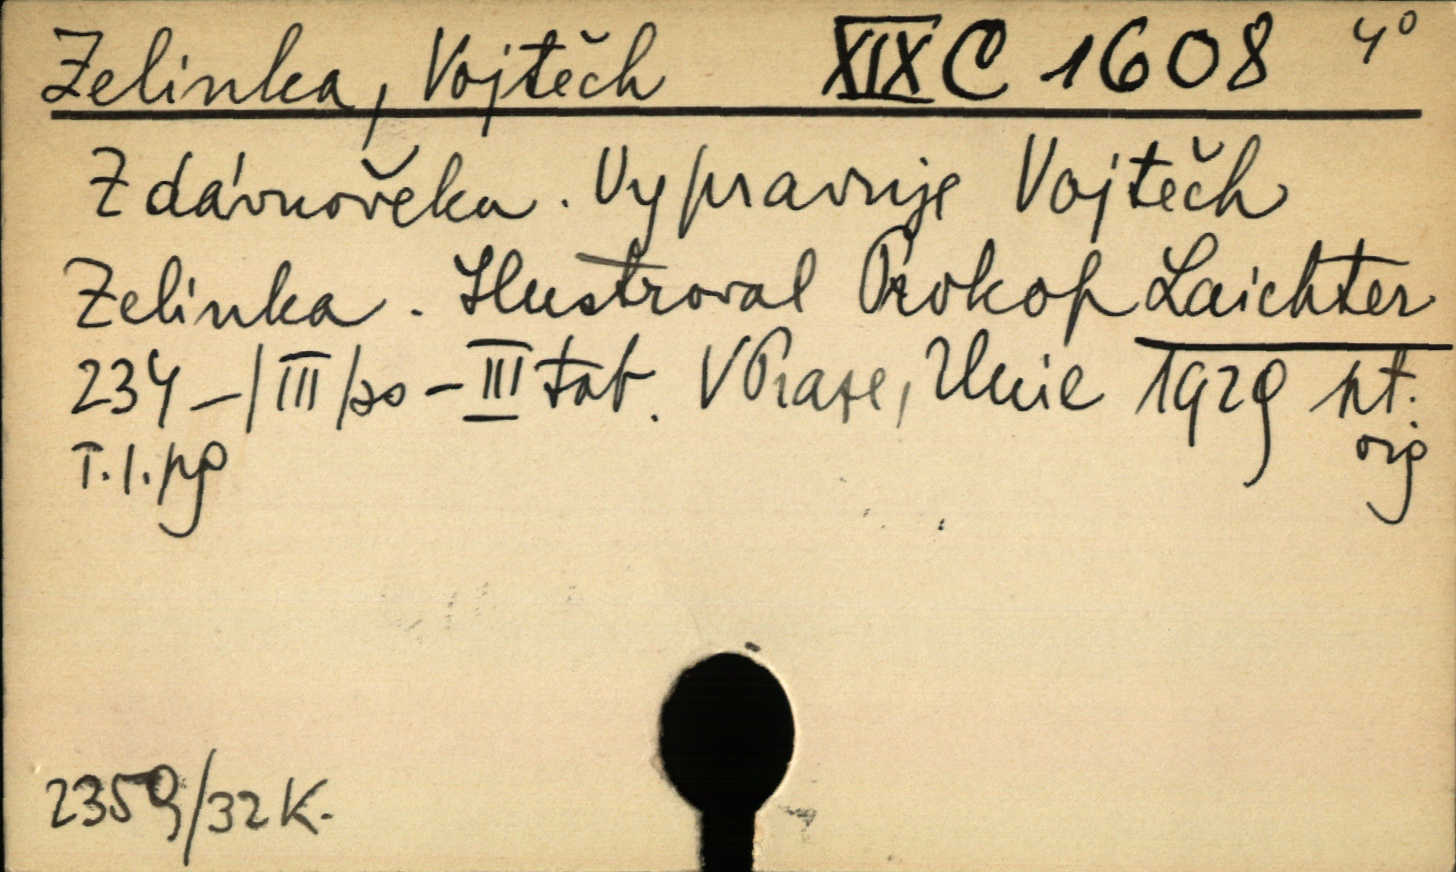 Zelinka, Vojtěch XIX C 1608 4°
Z dávnověku. Vypravuje Vojtěch
Zelinka. Ilustroval Prokop Laichter
234 - /III/ so - III tab. V Praze, Unie 1929 pt.
T. I. pg orig
2359/32 K.